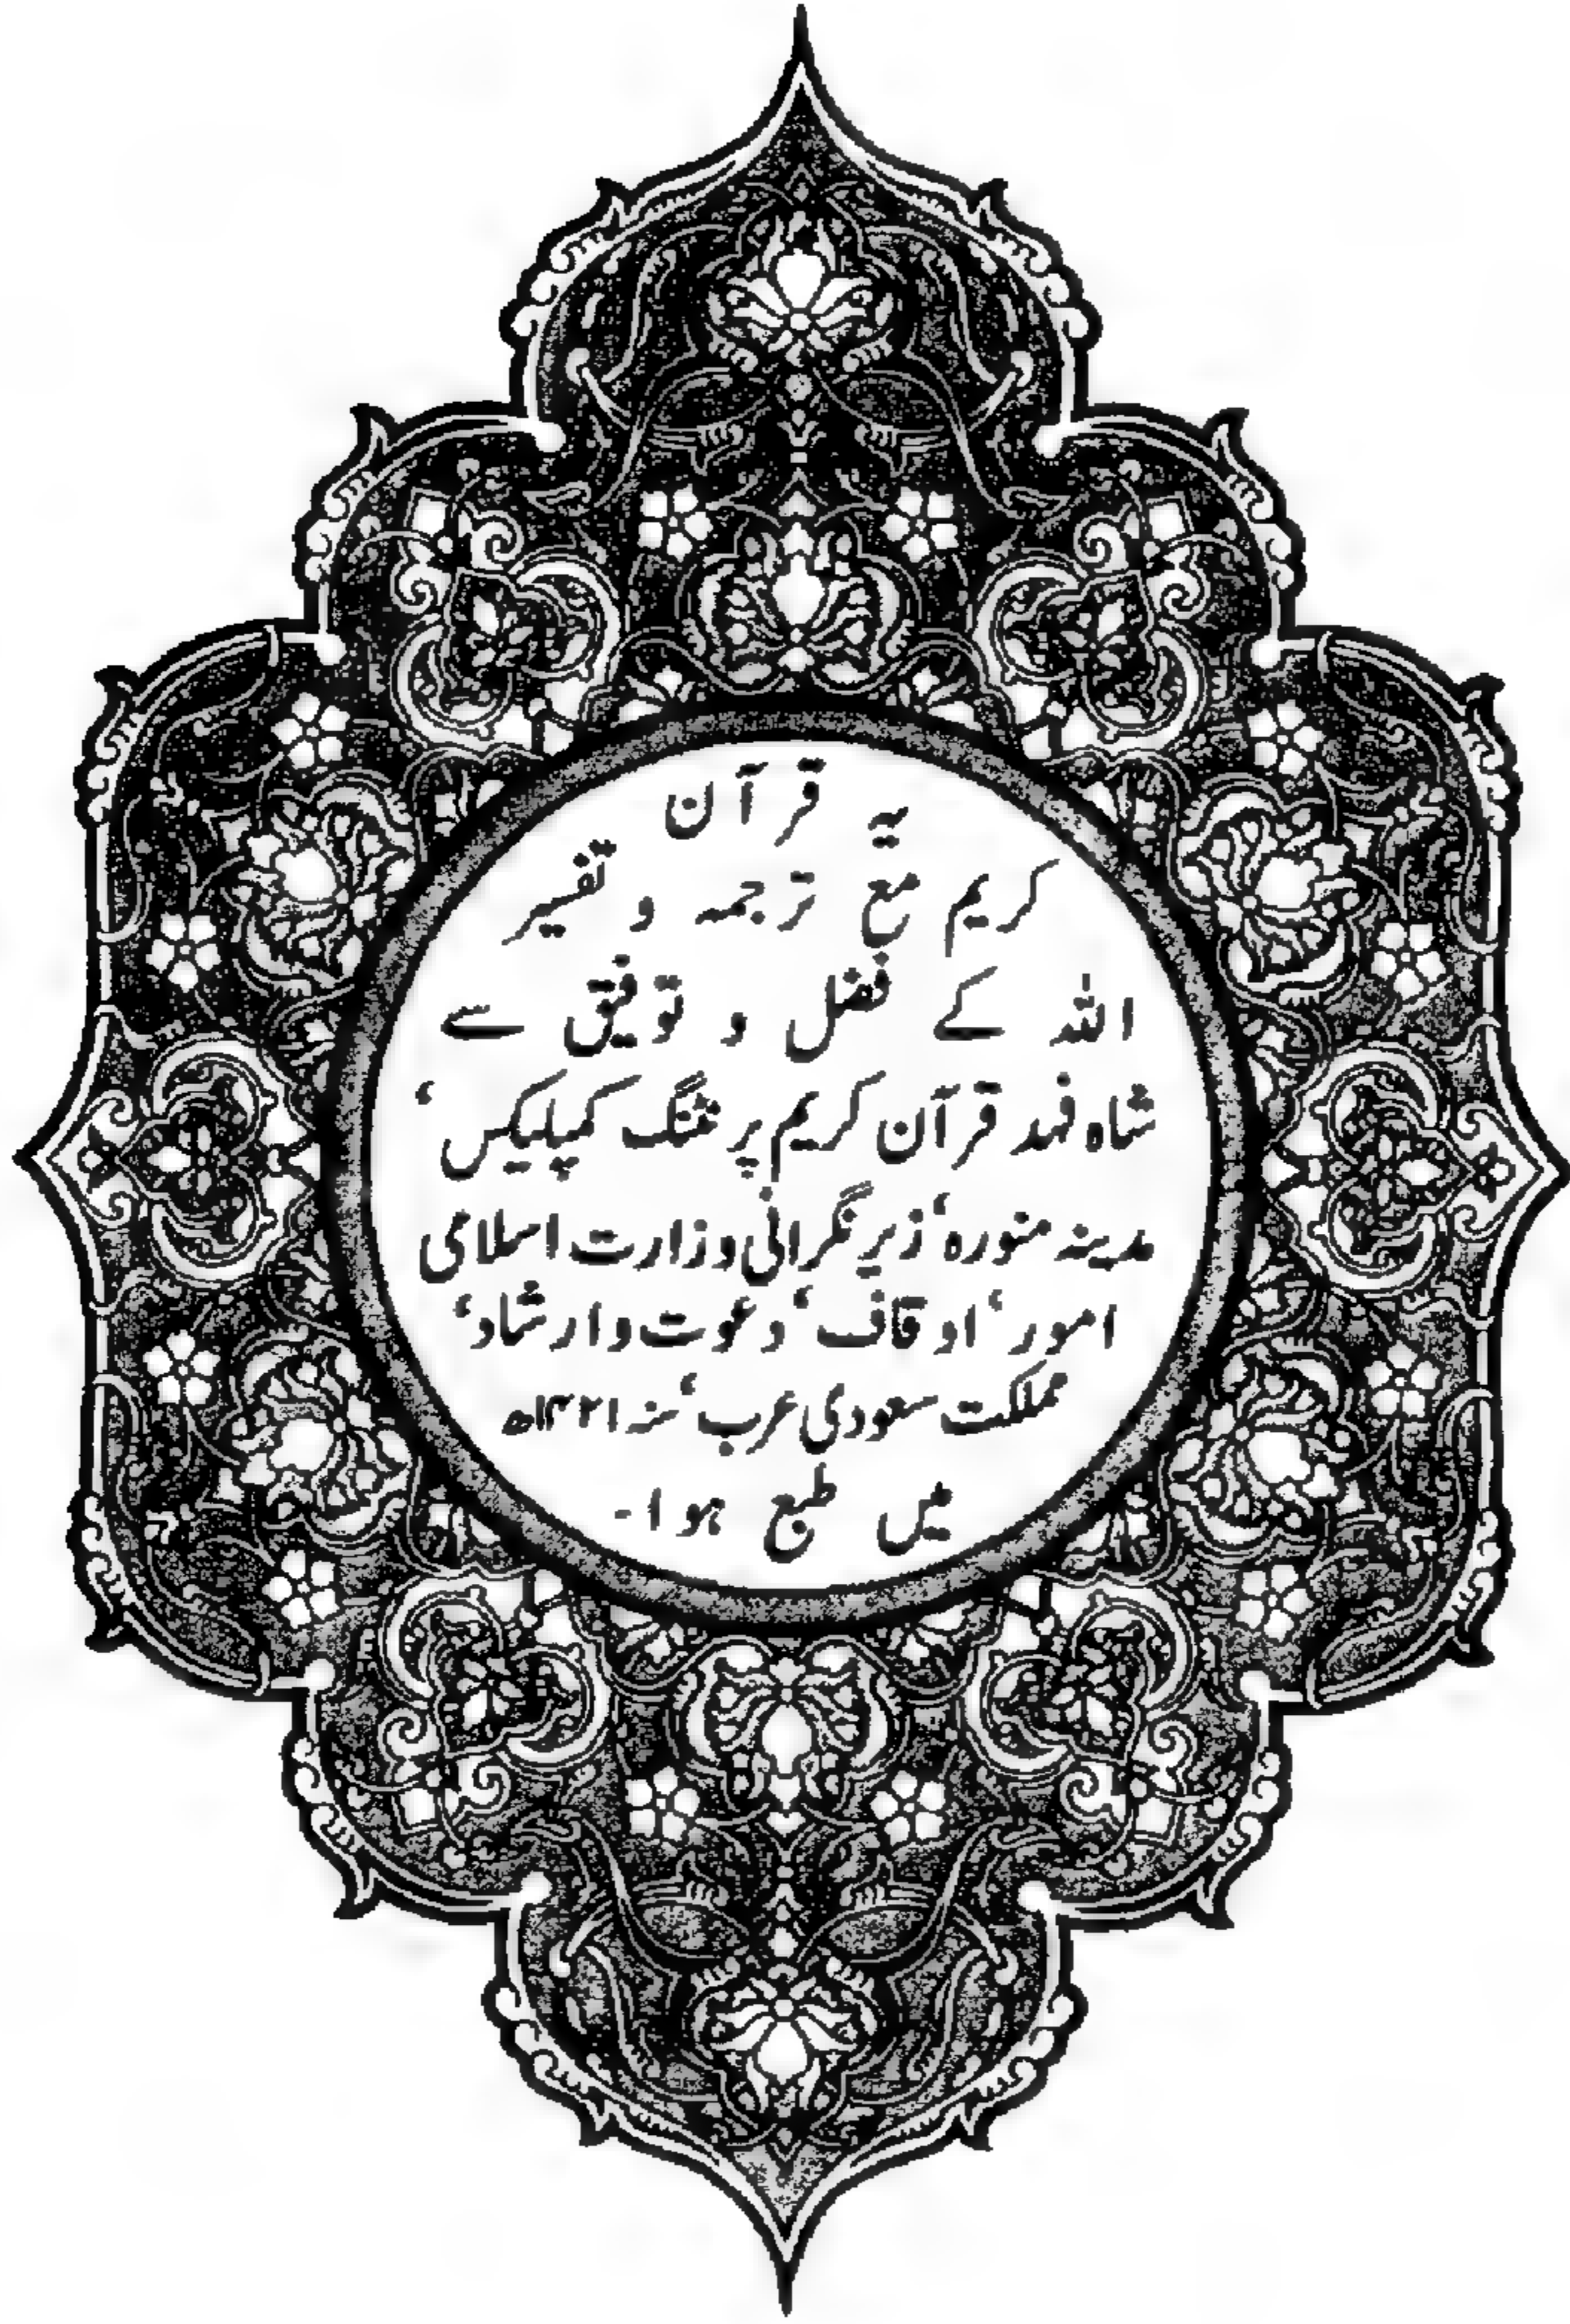 یہ قرآن
کریم مع ترجمہ و تفسیر
اللہ کے فضل و توفیق سے
شاہ فہد قرآن کریم پرنٹنگ کمپلیکس‘
مدینہ منورہ‘ زیر نگرانی وزارت اسلامی
امور‘ اوقاف‘ دعوت وارشاد‘
مملکت سعودی عرب‘ سنہ ۱۴۲۱ھ
میں طبع ہوا۔